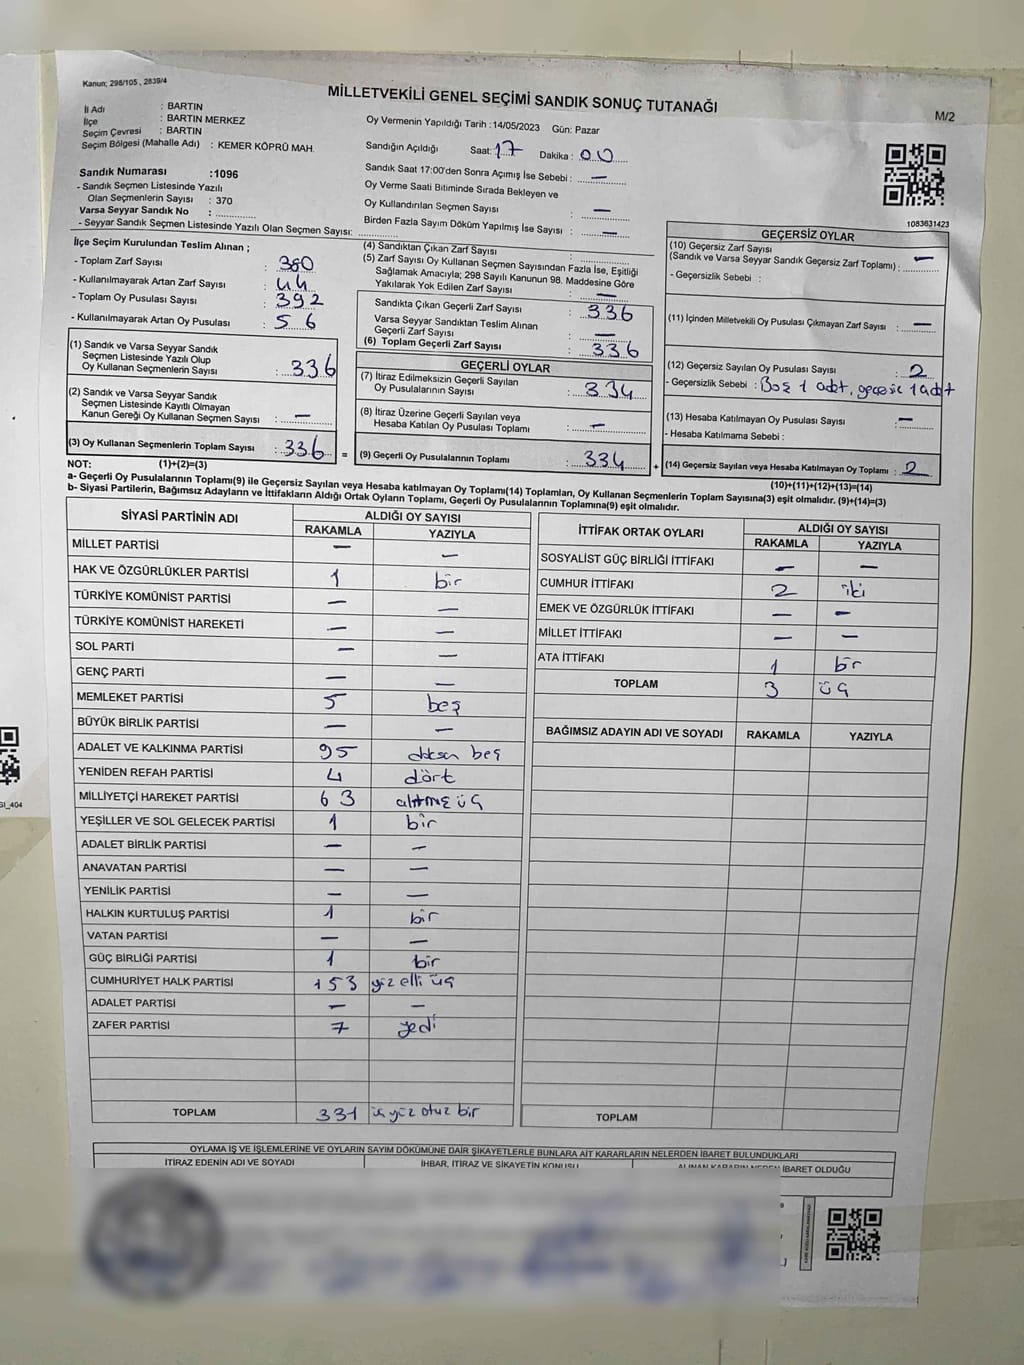 Kanun; 298/105 , 2839/4
MİLLETVEKİLİ GENEL SEÇİMİ SANDIK SONUÇ TUTANAĞI
M/2
İl Adı : BARTIN
İlçe : BARTIN MERKEZ
Seçim Çevresi : BARTIN
Seçim Bölgesi (Mahalle Adı) : KEMER KÖPRÜ MAH.
Oy Vermenin Yapıldığı Tarih : 14/05/2023 Gün: Pazar
Sandığın Açıldığı Saat: 17 Dakika : 00
Sandık Saat 17:00'den Sonra Açımış İse Sebebi : —
Oy Verme Saati Bitiminde Sırada Bekleyen ve
Oy Kullandırılan Seçmen Sayısı : —
Birden Fazla Sayım Döküm Yapılmış İse Sayısı : —
Sandık Numarası :1096
- Sandık Seçmen Listesinde Yazılı
Olan Seçmenlerin Sayısı : 370
Varsa Seyyar Sandık No :
- Seyyar Sandık Seçmen Listesinde Yazılı Olan Seçmen Sayısı:
1083631423
İlçe Seçim Kurulundan Teslim Alınan ;
- Toplam Zarf Sayısı : 380
- Kullanılmayarak Artan Zarf Sayısı : 44
- Toplam Oy Pusulası Sayısı : 392
- Kullanılmayarak Artan Oy Pusulası : 56
(1) Sandık ve Varsa Seyyar Sandık
Seçmen Listesinde Yazılı Olup
Oy Kullanan Seçmenlerin Sayısı : 336
(2) Sandık ve Varsa Seyyar Sandık
Seçmen Listesinde Kayıtlı Olmayan
Kanun Gereği Oy Kullanan Seçmen Sayısı : —
(3) Oy Kullanan Seçmenlerin Toplam Sayısı : 336 =
(4) Sandıktan Çıkan Zarf Sayısı :
(5) Zarf Sayısı Oy Kullanan Seçmen Sayısından Fazla İse, Eşitliği
Sağlamak Amacıyla; 298 Sayılı Kanunun 98. Maddesine Göre
Yakılarak Yok Edilen Zarf Sayısı : —
Sandıkta Çıkan Geçerli Zarf Sayısı : 336
Varsa Seyyar Sandıktan Teslim Alınan
Geçerli Zarf Sayısı : —
(6) Toplam Geçerli Zarf Sayısı : 336
GEÇERLİ OYLAR
(7) İtiraz Edilmeksizin Geçerli Sayılan
Oy Pusulalarının Sayısı : 334
(8) İtiraz Üzerine Geçerli Sayılan veya
Hesaba Katılan Oy Pusulası Toplamı : —
(9) Geçerli Oy Pusulalarının Toplamı : 334 +
GEÇERSİZ OYLAR
(10) Geçersiz Zarf Sayısı
(Sandık ve Varsa Seyyar Sandık Geçersiz Zarf Toplamı) : —
- Geçersizlik Sebebi :
(11) İçinden Milletvekili Oy Pusulası Çıkmayan Zarf Sayısı : —
(12) Geçersiz Sayılan Oy Pusulası Sayısı : 2
- Geçersizlik Sebebi : Boş 1 adet, geçersiz 1 adet
(13) Hesaba Katılmayan Oy Pusulası Sayısı : —
- Hesaba Katılmama Sebebi :
(14) Geçersiz Sayılan veya Hesaba Katılmayan Oy Toplamı : 2
NOT: (1)+(2)=(3)
(10)+(11)+(12)+(13)=(14)
a- Geçerli Oy Pusulalarının Toplamı(9) ile Geçersiz Sayılan veya Hesaba katılmayan Oy Toplamı(14) Toplamları, Oy Kullanan Seçmenlerin Toplam Sayısına(3) eşit olmalıdır. (9)+(14)=(3)
b- Siyasi Partilerin, Bağımsız Adayların ve İttifakların Aldığı Ortak Oyların Toplamı, Geçerli Oy Pusulalarının Toplamına(9) eşit olmalıdır.
SİYASİ PARTİNİN ADI ALDIĞI OY SAYISI
RAKAMLA YAZIYLA
MİLLET PARTİSİ — —
HAK VE ÖZGÜRLÜKLER PARTİSİ 1 bir
TÜRKİYE KOMÜNİST PARTİSİ — —
TÜRKİYE KOMÜNİST HAREKETİ — —
SOL PARTİ — —
GENÇ PARTİ — —
MEMLEKET PARTİSİ 5 beş
BÜYÜK BİRLİK PARTİSİ — —
ADALET VE KALKINMA PARTİSİ 95 doksan beş
YENİDEN REFAH PARTİSİ 4 dört
MİLLİYETÇİ HAREKET PARTİSİ 63 altmış üç
YEŞİLLER VE SOL GELECEK PARTİSİ 1 bir
ADALET BİRLİK PARTİSİ — —
ANAVATAN PARTİSİ — —
YENİLİK PARTİSİ — —
HALKIN KURTULUŞ PARTİSİ 1 bir
VATAN PARTİSİ — —
GÜÇ BİRLİĞİ PARTİSİ 1 bir
CUMHURİYET HALK PARTİSİ 153 yüz elli üç
ADALET PARTİSİ — —
ZAFER PARTİSİ 7 yedi
TOPLAM 331 üç yüz otuz bir
İTTİFAK ORTAK OYLARI ALDIĞI OY SAYISI
RAKAMLA YAZIYLA
SOSYALİST GÜÇ BİRLİĞİ İTTİFAKI — —
CUMHUR İTTİFAKI 2 iki
EMEK VE ÖZGÜRLÜK İTTİFAKI — —
MİLLET İTTİFAKI — —
ATA İTTİFAKI 1 bir
TOPLAM 3 üç
BAĞIMSIZ ADAYIN ADI VE SOYADI RAKAMLA YAZIYLA
TOPLAM
OYLAMA İŞ VE İŞLEMLERİNE VE OYLARIN SAYIM DÖKÜMÜNE DAİR ŞİKAYETLERLE BUNLARA AİT KARARLARIN NELERDEN İBARET BULUNDUKLARI
İTİRAZ EDENİN ADI VE SOYADI İHBAR, İTİRAZ VE ŞİKAYETİN KONUSU ALINAN KARARIN NEDEN İBARET OLDUĞU